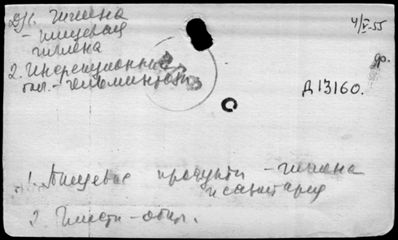 гигиена
- пищевая
гигиена
2. Инфекционные
бол. - гельминтозы
4/V-55
др.
Д 13160.
1. Пищевые продукты - гигиена
и санитария
2. Глисты - общ.